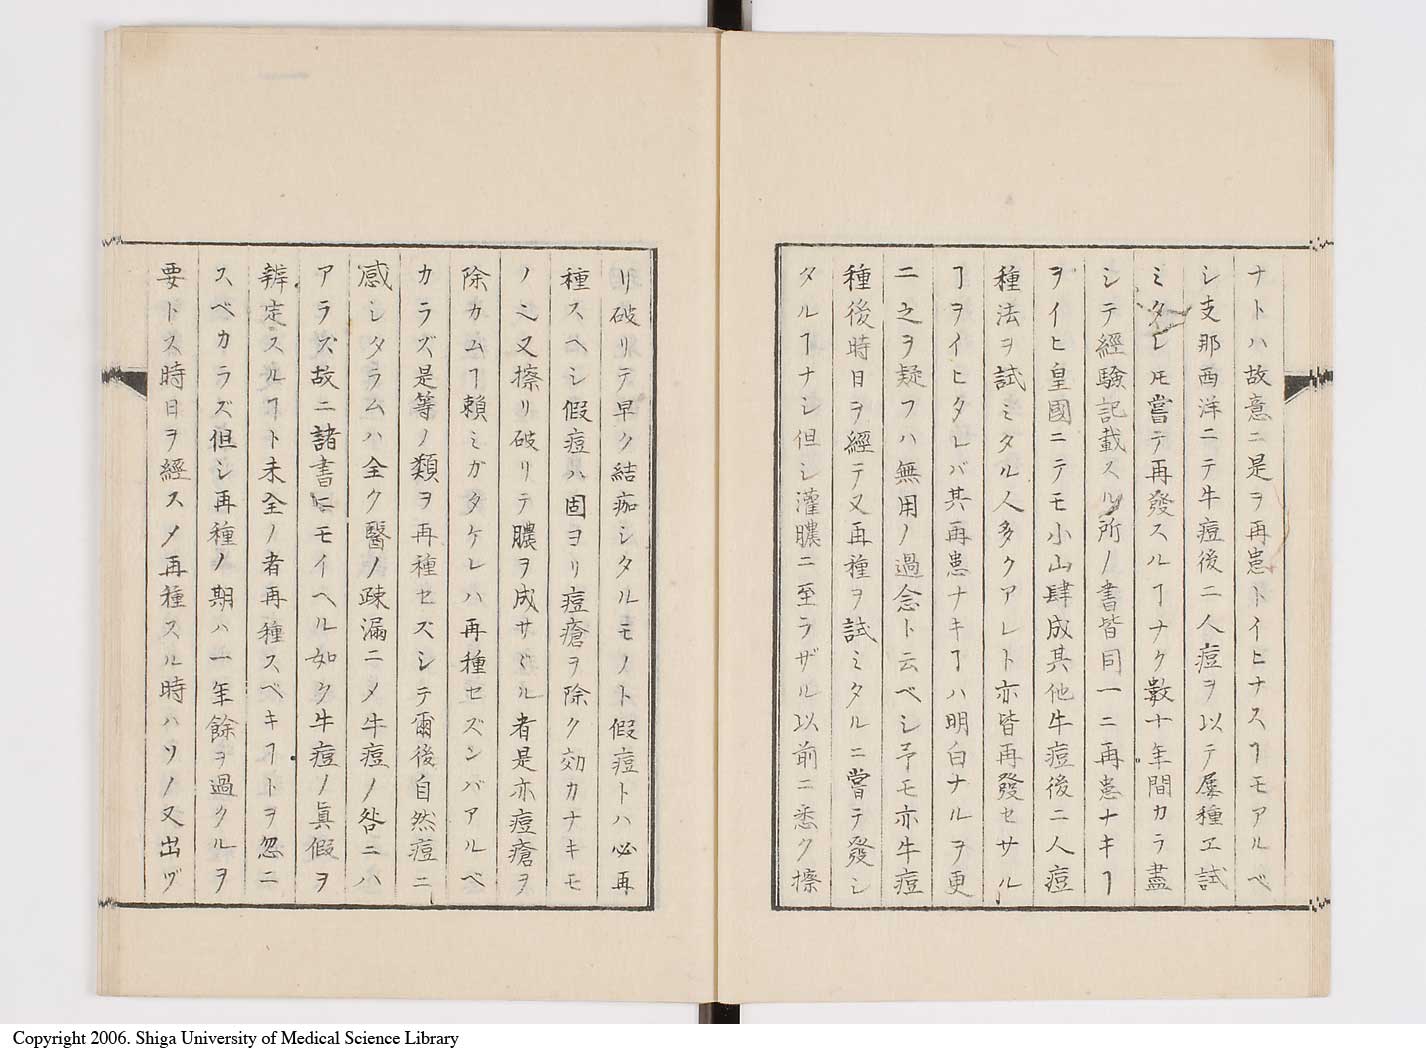 ナトハ故意ニ是ヲ再患トイヒナスヿモアルベ
シ支那西洋ニテ牛痘後ニ人痘ヲ以テ屢種ヱ試
ミタレ𪜈嘗テ再發スルヿナク數十年間カラ盡
シテ經驗記載スル所ノ書皆同一ニ再患ナキヿ
ヲイヒ皇國ニテモ小山肆成其他牛痘後ニ人痘
種法ヲ試ミタル人多クアレト亦皆再發セサル
ヿヲイヒタレバ其再患ナキヿハ明白ナルヲ更
ニ之ヲ疑フハ無用ノ過念ト云ベシ予モ亦牛痘
種後時日ヲ經テ又再種ヲ試ミタルニ嘗テ發シ
タルヿナシ但シ灌膿ニ至ラザル以前ニ悉ク擦
リ破リテ早ク結痂シタルモノト假痘トハ必再
種スヘシ假痘ハ固ヨリ痘瘡ヲ除ク効カナキモ
ノニ又擦リ破リテ膿ヲ成サヾル者是亦痘瘡ヲ
除カムヿ頼ミガタケレハ再種セズンバアルベ
カラズ是等ノ類ヲ再種セズシテ爾後自然痘ニ
感シタラムハ全ク醫ノ疎漏ニメ牛痘ノ咎ニハ
アラズ故ニ諸書ニモイヘル如ク牛痘ノ眞假ヲ
辨定スルヿト未全ノ者再種スベキヿトヲ忽ニ
スベカラズ但シ再種ノ期ハ一年餘ヲ過クルヲ
要トス時日ヲ經スメ再種スル時ハソノ又出ヅ
Copyright 2006. Shiga University of Medical Science Library